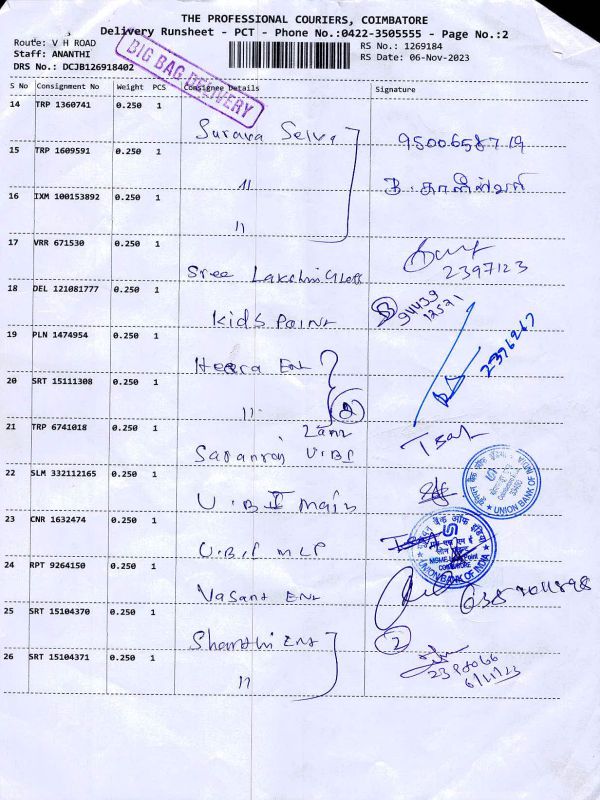 THE PROFESSIONAL COURIERS, COIMBATORE
Delivery Runsheet - PCT - Phone No.:0422-3505555 - Page No.:2
Route: V H ROAD
Staff: ANANTHI
DRS No.: DCJB126918402
RS No.: 1269184
RS Date: 06-Nov-2023
BIG BAG DELIVERY
S No Consignment No Weight PCS Consignee Details Signature
14 TRP 1360741 0.250 1
Selva
15 TRP 1609591 0.250 1
〃
16 IXM 100153892 0.250 1
〃
17 VRR 671530 0.250 1
Sree Lakshmi
2397123
18 DEL 121081777 0.250 1
Kids Point
94439
12571
19 PLN 1474954 0.250 1
Heera Ent
20 SRT 15111308 0.250 1
〃
2
21 TRP 6741018 0.250 1
U.B.I
22 SLM 332112165 0.250 1
U.B.I main
UNION BANK OF INDIA
23 CNR 1632474 0.250 1
U.B.I MLP
यूनियन बैंक ऑफ इंडिया
UNION BANK OF INDIA
24 RPT 9264150 0.250 1
Vasant Ent
25 SRT 15104370 0.250 1
Shanthi Ent
2
26 SRT 15104371 0.250 1
〃
6/11/23